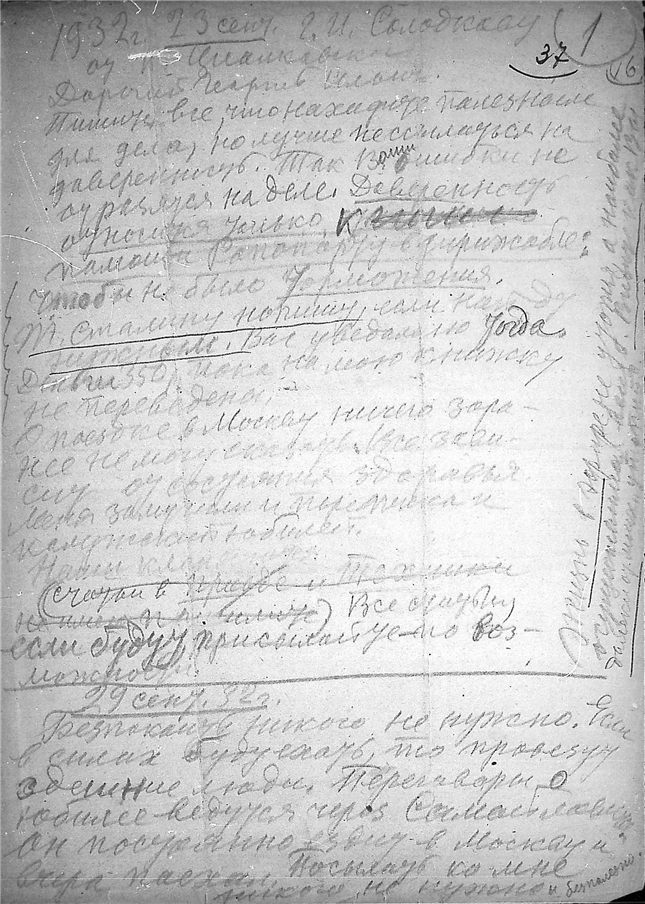 1932 г. 23 сент. Г. И. Солодкову
от К. Циолковского
1
37
16
Дорогой Георгий
Пишите все, что находите полезным
для дела, но лучше не ссылаться на
доверенность. Так Ваши ошибки не
отразятся на деле. Доверенность
относится только к
помощи Рапопорту в дирижабле,
чтобы не было торможения.
Т. Сталину напишу, если найду
нужным. Вас уведомлю тогда.
Деньги 350 р. пока на мою книжку
не переведены.
О поездке в Москву ничего зара-
нее не могу сказать. Все зави-
сит от состояния здоровья.
Меня замучили и переписка и
калужский юбилей.
Наши
(статьи в Правде и Технике
Все статьи,
если будут, присылайте по воз-
можности.
29 сент. 32 г.
Беспокоить никого не нужно. Если
в силах буду ехать, то провезут
здешние люди. Переговоры о
юбилее ведутся через Самойловича.
Он постоянно ездит в Москву и
вчера поехал. Посылать ко мне
никого не нужно и бесполезно.
Жизнь в эфире не утопия, а наиболее